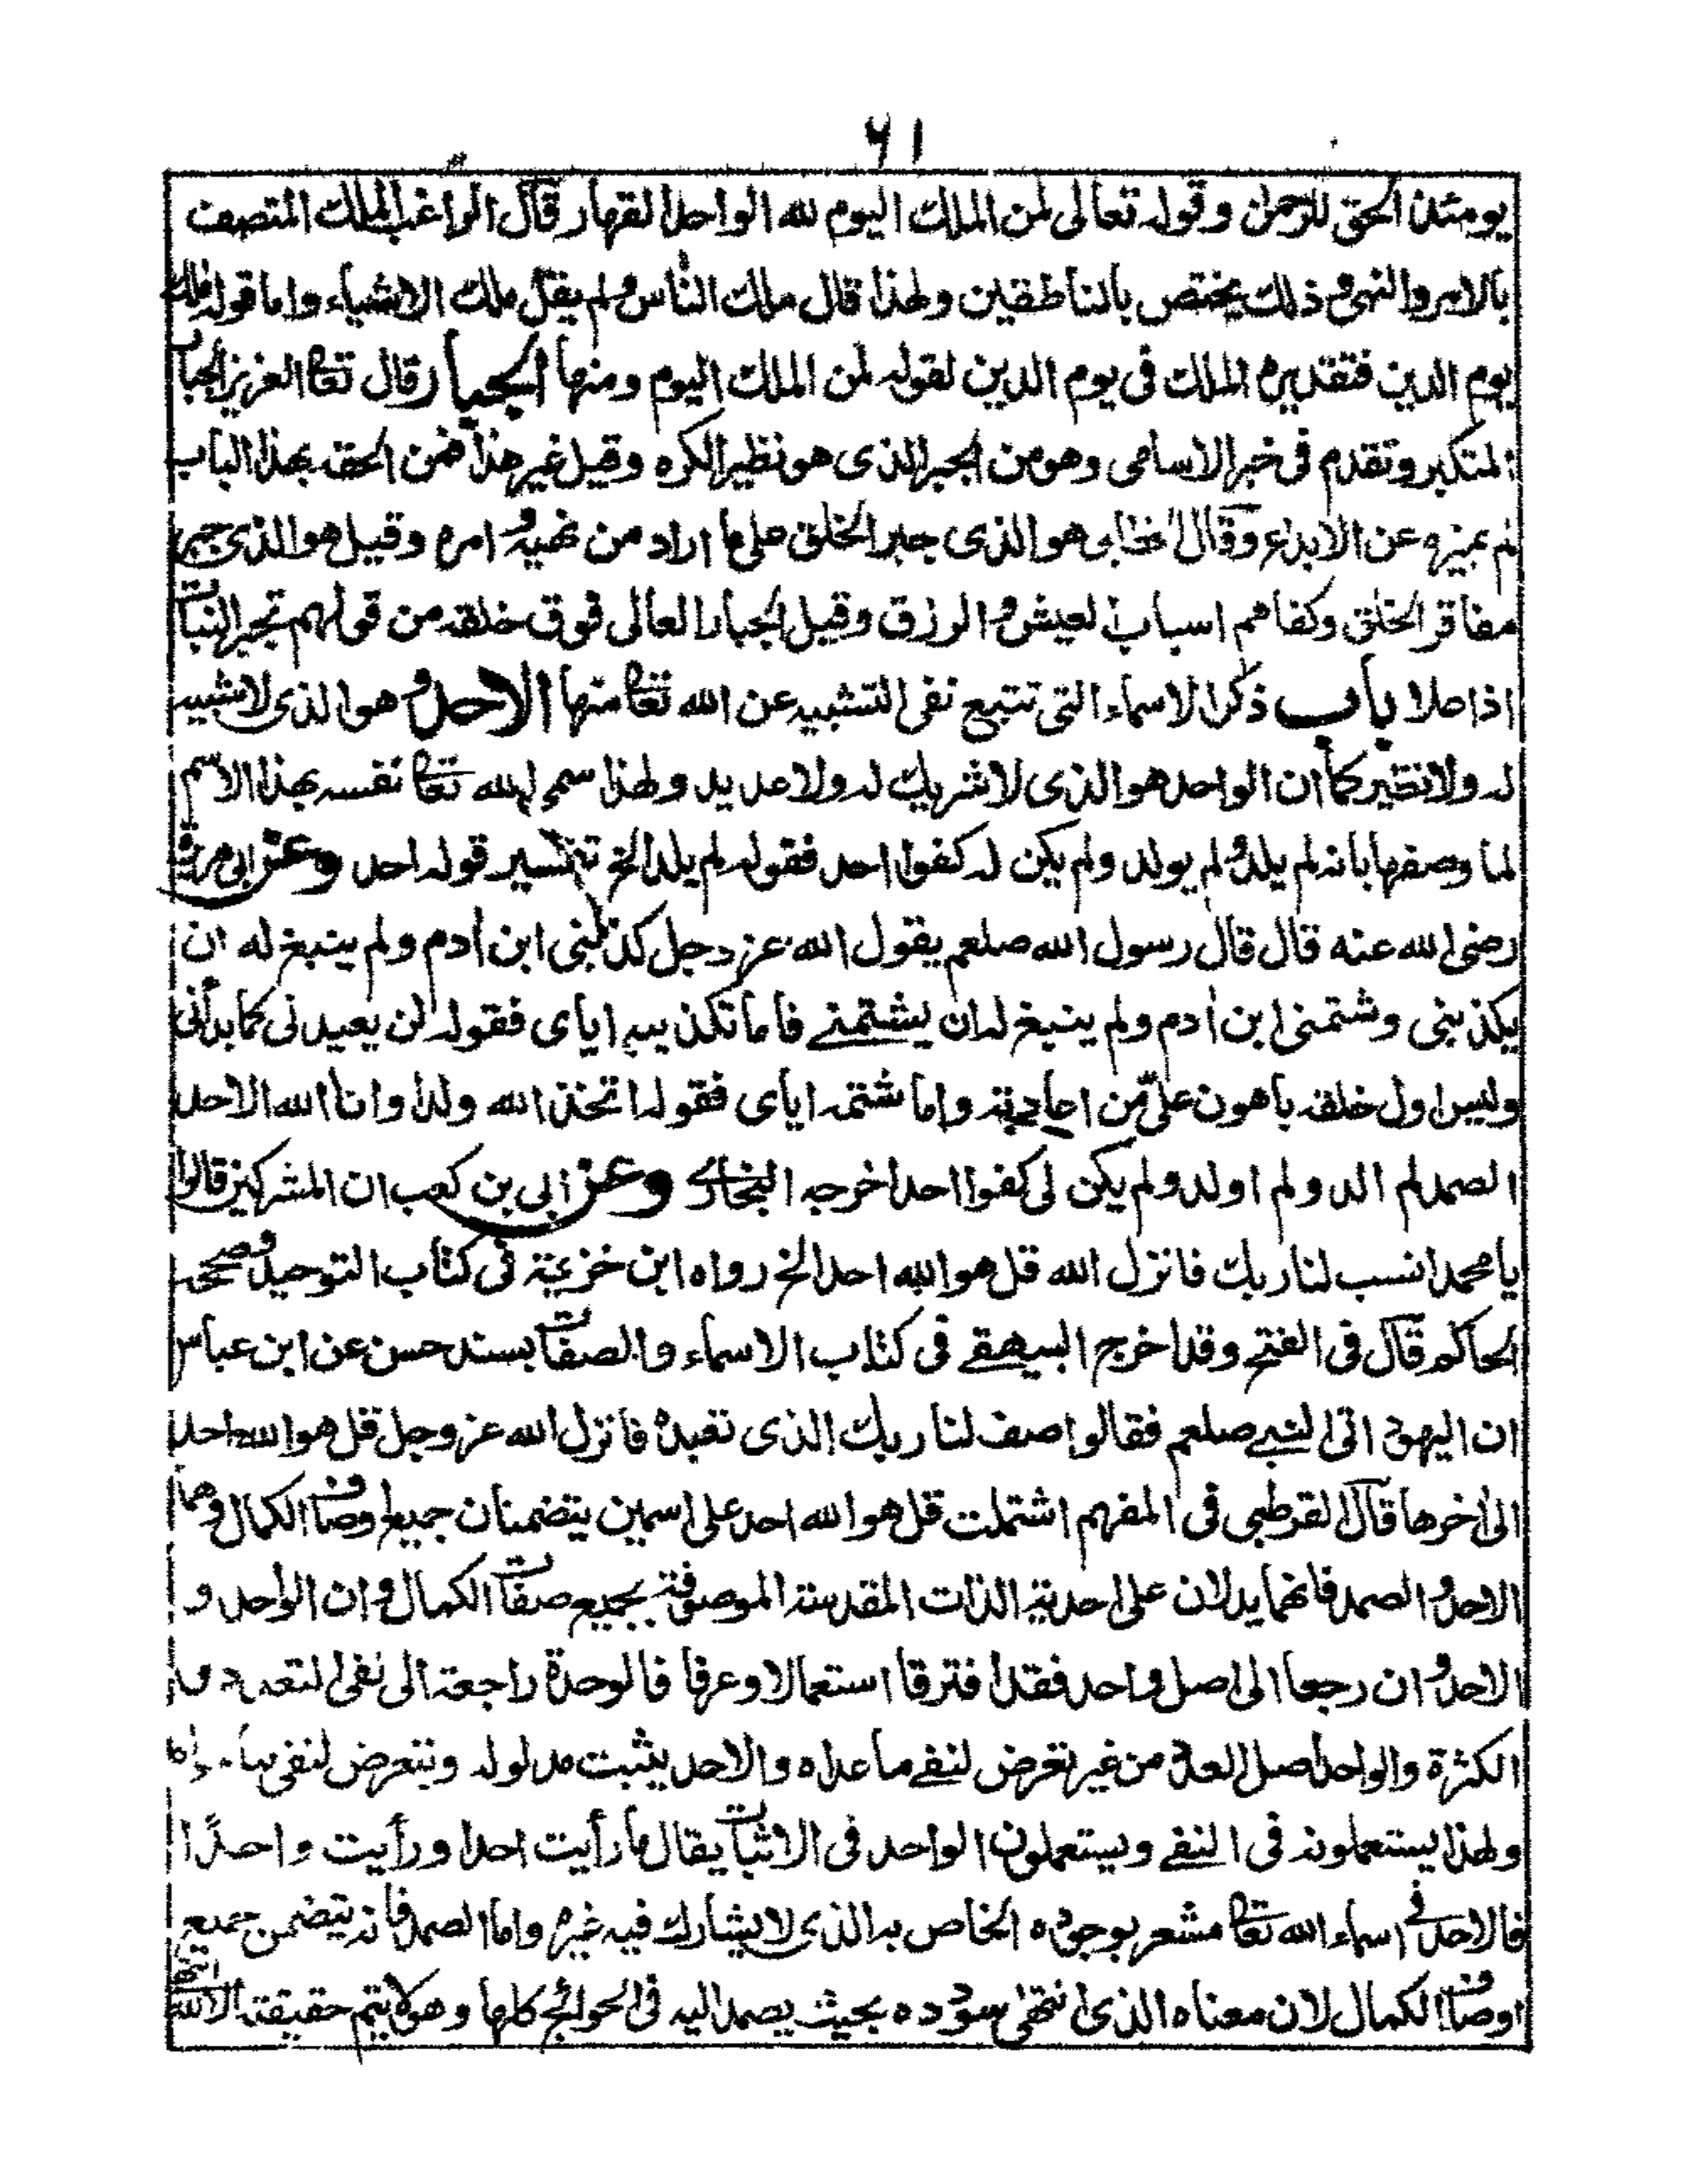 ٦١
يومئذن الحق للرحمن وقوله تعالى لمن الملك اليوم لله الواحد القهار قال الراغب الملك المتصف
بالامر والنهي وذلك يختص بالناطقين ولهذا قال ملك الناس ولم يقل ملك الاشياء واما قوله ملك
يوم الدين فتقديره الملك فى يوم الدين لقوله لمن الملك اليوم ومنها الجبار قال تعا العزيز الجبار
المتكبر وتقدم فى خبر الاسامى وهو من الجبر الذى هو نظير الكره وقيل غير هذا فمن الحقه بهذا الباب
لم يميزه عن الابداع وقال الخطابى هو الذى جبر الخلق على ما اراد من نهيه وامره وقيل هو الذى جبر
مفاقر الخلق وكفاهم اسباب العيش والرزق وقيل الجبار العالى فوق خلقه من قولهم تجبر النبات
اذا علا باب ذكر الاسماء التى تتبع نفى التشبيه عن الله تعا منها الاحد وهو الذى لا شبيه
له ولا نظير كما ان الواحد هو الذى لا شريك له ولا عديد ولهذا سمى الله تعا نفسه بهذا الاسم
لما وصفها بانه لم يلد ولم يولد ولم يكن له كفوا احد فقوله لم يلد الخ تفسير قوله احد وعن ابى هريرة
رضى الله عنه قال قال رسول الله صلعم يقول الله عز وجل كذبنى ابن أدم ولم ينبغ له ان
يكذبنى وشتمنى ابن أدم ولم ينبغ له ان يشتمنے فاما تكذيبه اياى فقوله لن يعيدنى كما بدأنى
وليس اول خلقه باهون علىّ من اعادته واما شتمه اياى فقوله اتخذ الله ولدا وانا الله الاحد
الصمد لم الد ولم اولد ولم يكن لى كفوا احد اخرجه البخارے وعن ابى بن كعب ان المشركين قالوا
يا محمد انسب لنا ربك فانزل الله قل هو الله احد الخ رواه ابن خزيمة فى كتاب التوحيد وصححه
الحاكم قال فى الفتح وقد اخرج البيهقے فى كتاب الاسماء والصفات بسند حسن عن ابن عباس
ان اليهود اتى النبے صلعم فقالوا صف لنا ربك الذى تعبده فانزل الله عز وجل قل هو الله احد
الى اخرها قال القرطبى فى المفهم اشتملت قل هو الله احد على اسمين يتضمنان جميع اوصاف الكمال وهما
الاحد والصمد فانهما يدلان على احدية الذات المقدسة الموصوفة بجميع صفات الكمال وان الواحد و
الاحد وان رجعا الى اصل واحد فقد افترقا استعمالا وعرفا فالوحدة راجعة الى نفى التعدد و
الكثرة والواحد اصل العدد من غير تعرض لنفے ما عداه والاحد يثبت مدلوله ويتعرض لنفى ما
ولهذا يستعملونه فى النفے ويستعملون الواحد فى الاثبات يقال ما رأيت احدا ورأيت واحدًا
فالاحد فى اسماء الله تعا مشعر بوجوده الخاص به الذى لا يشارك فيه غيره واما الصمد فانه يتضمن جميع
اوصاف الكمال لان معناه الذى انتهى سودده بحيث يصمد اليه فى الحوائج كلها وهو لا يتم حقيقة الا لله انتهى